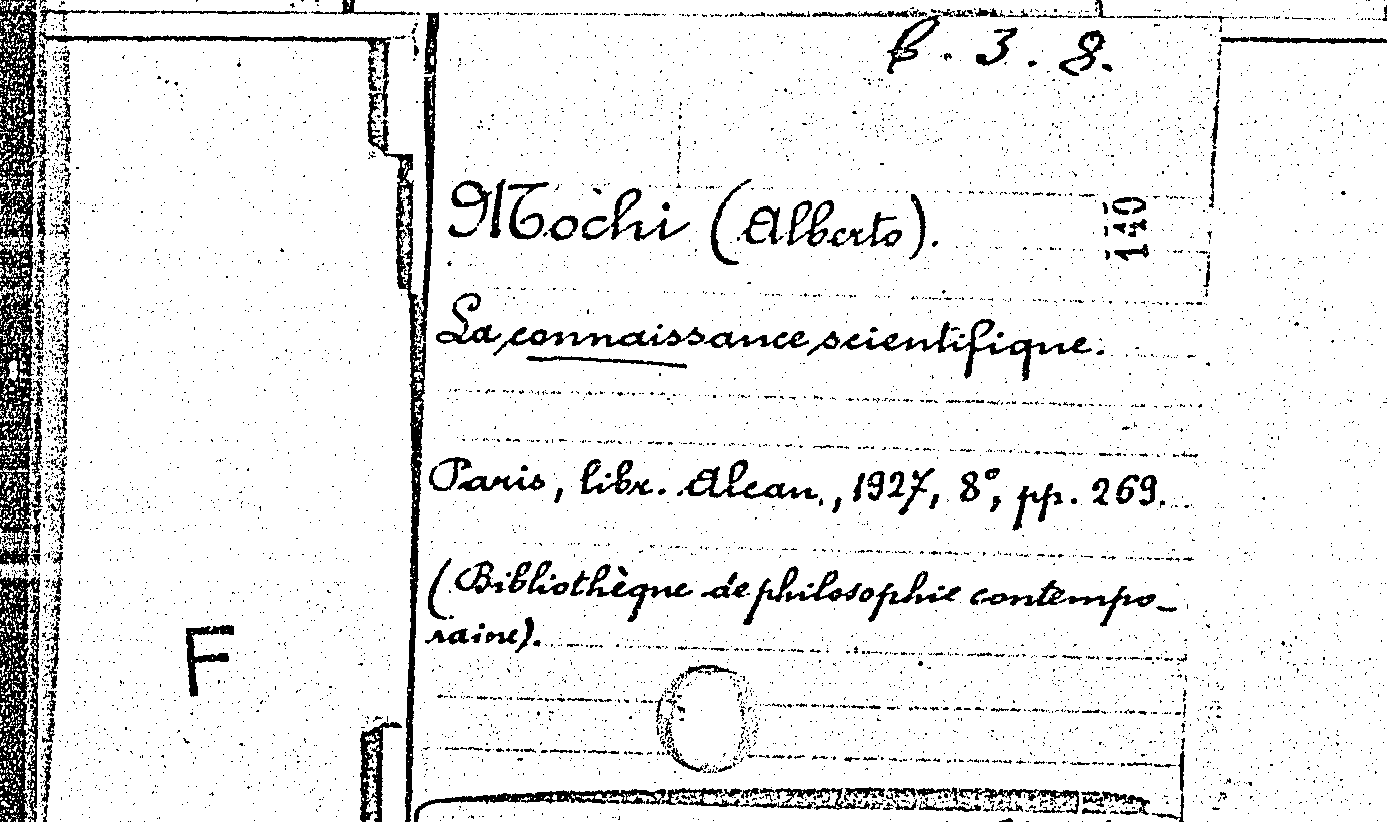 B. 3. 8.
Mochi (Alberto).
140
La connaissance scientifique.
Paris, libr. Alcan, 1927, 8°, pp. 269.
(Bibliothèque de philosophie contempo-
raine).
F